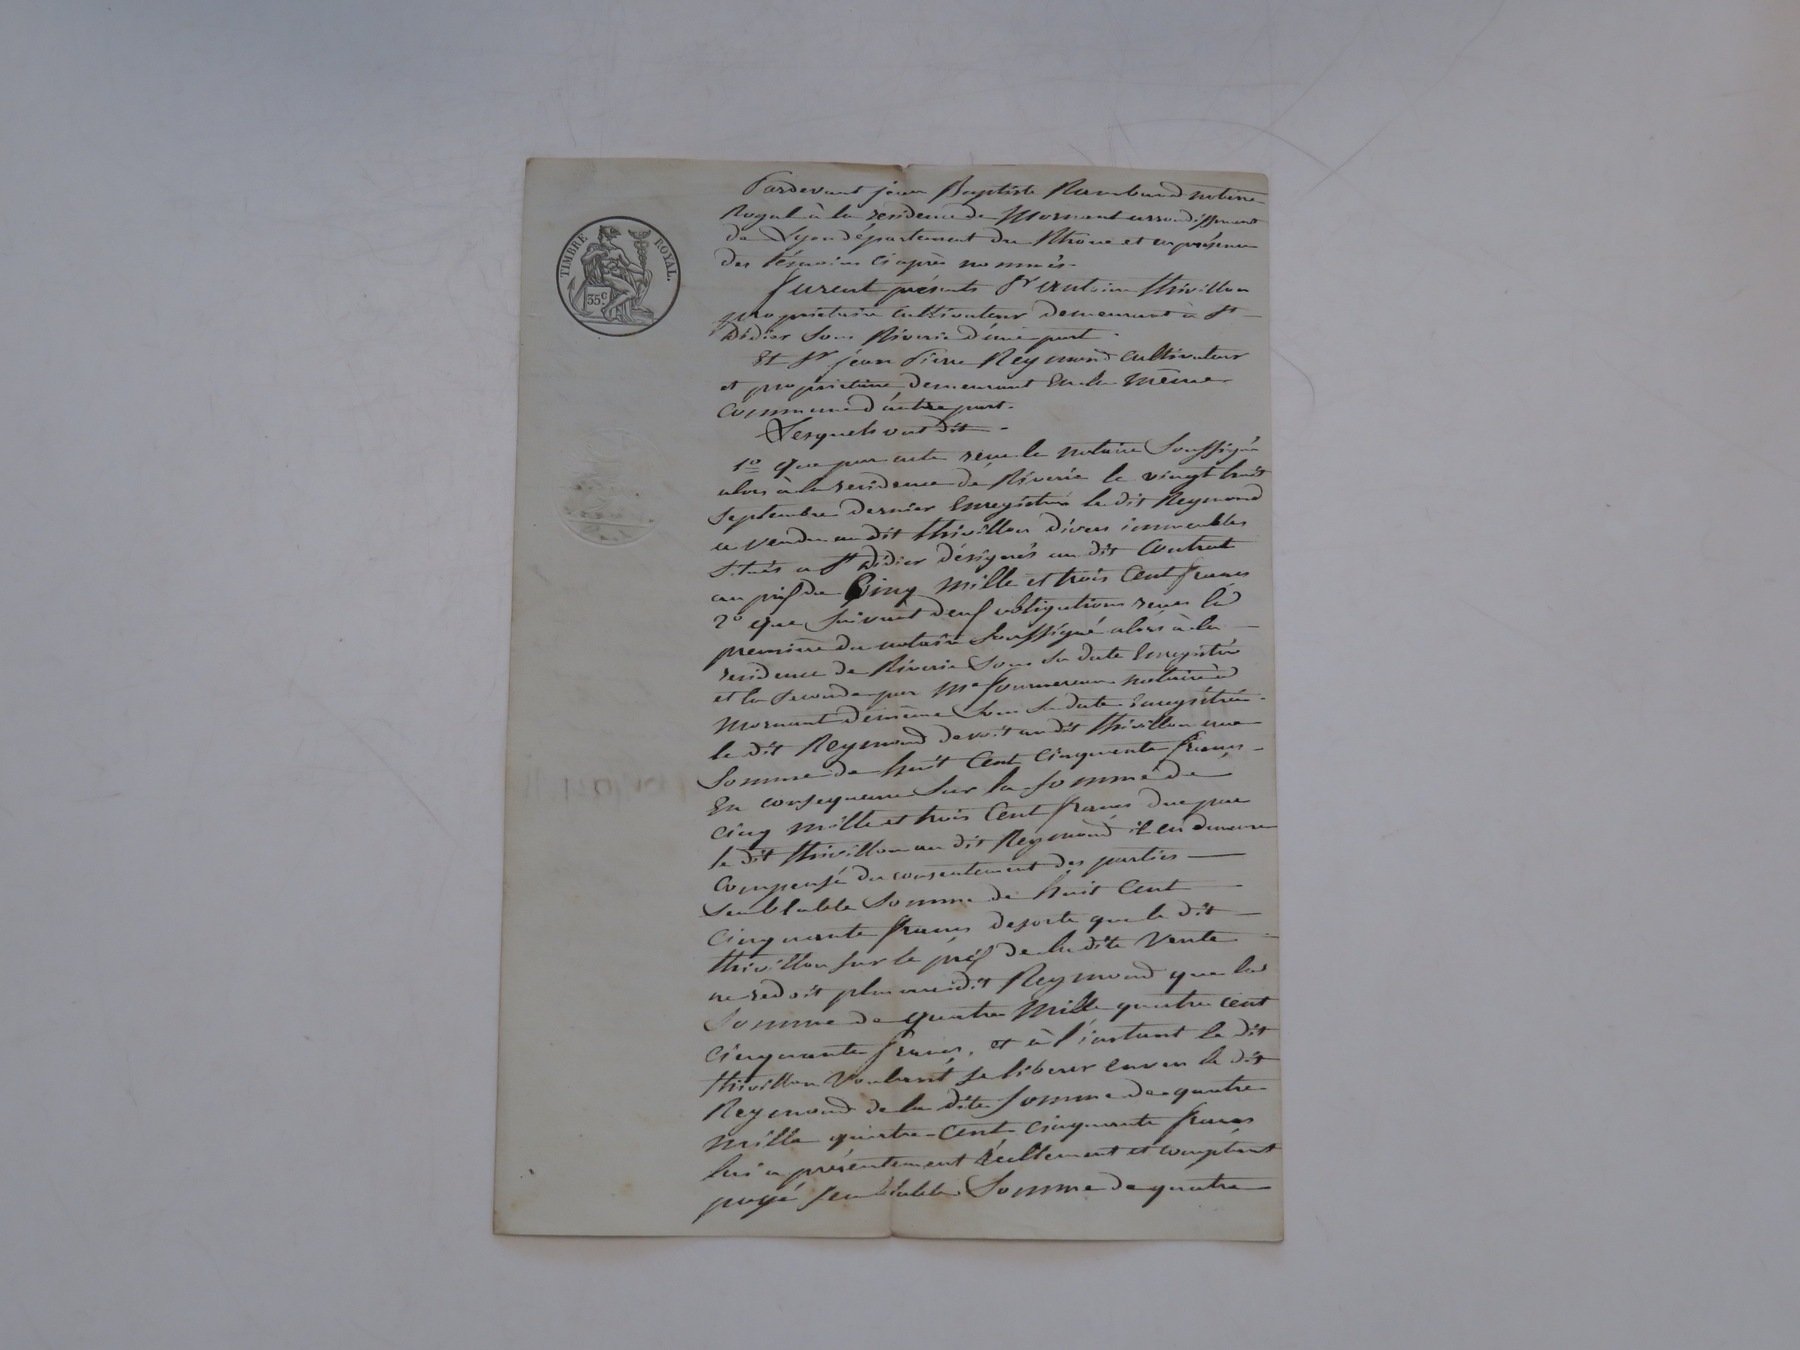 TIMBRE ROYAL.
35 c.
Pardevant jean Baptiste Rambaud notaire
Royal à la residence de Mornant arrondissement
de Lyon département du Rhone et en présence
des témoins ci après nommés.
furent présents Sr antoine thivillon
propriétaire cultivateur demeurant à St
Didier Sous Riverie d'une part.
Et Sr jean Pierre Reymond cultivateur
et propriétaire demeurant En la même
Commune d'autre part.
Lesquels ont dit
1o que par acte reçu le notaire Soussigné
alors à la residence de Riverie le vingt huit
Septembre dernier Enregistré le dit Reymond
a vendu au dit thivillon divers immeubles
situés a St Didier désignés au dit Contrat
au prix de Cinq mille et trois Cent francs
2o que Suivant deux obligations reçues la
première du notaire Soussigné alors à la
residence de Riverie Sous Sa date Enregistré
et la Seconde par Me fournereau notaire à
Mornant de même Sous Sa date Enregistrée.
le dit Reymond devoit au dit thivillon une
Somme de huit Cent Cinquante francs
En consequence Sur la Somme de
Cinq mille et trois Cent francs due par
le dit thivillon au dit Reymond il en demeure
Compensé du consentement des parties
Semblable Somme de huit Cent
Cinquante francs desorte que le dit
thivillon Sur le prix de la dite Vente
ne redoit plus au dit Reymond que la
Somme de quatre Mille quatre cent
Cinquante francs, et à l'instant le dit
thivillon Voulant se libérer envers le dit
Reymond de la dite Somme de quatre
Mille quatre-Cent Cinquante francs
lui a présentement réellement et comptant
payé Semblable Somme de quatre